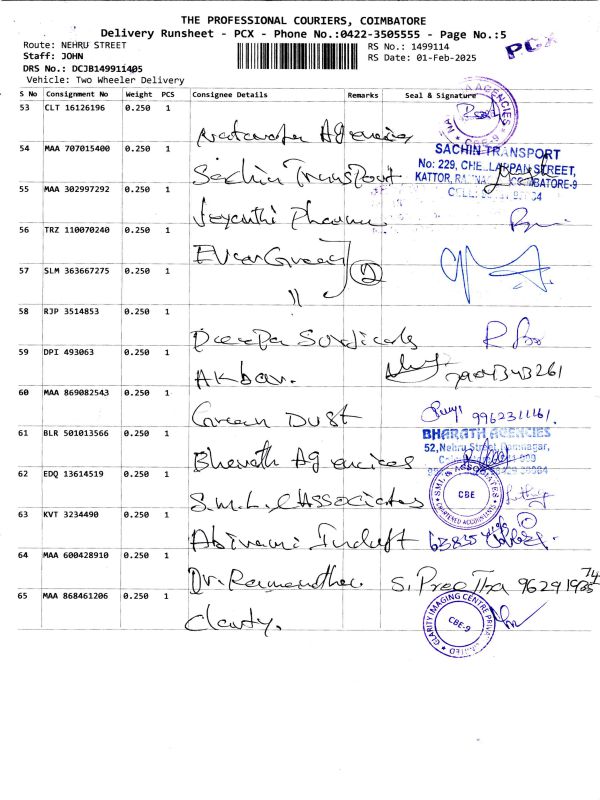 THE PROFESSIONAL COURIERS, COIMBATORE
Delivery Runsheet - PCX - Phone No.:0422-3505555 - Page No.:5
Route: NEHRU STREET RS No.: 1499114 PCX
Staff: JOHN RS Date: 01-Feb-2025
DRS No.: DCJB149911405
Vehicle: Two Wheeler Delivery
S No Consignment No Weight PCS Consignee Details Remarks Seal & Signature
53 CLT 16126196 0.250 1 Agencies
AGENCIES CBE-9
54 MAA 707015400 0.250 1 Sachin Transport
SACHIN TRANSPORT
No: 229, STREET,
55 MAA 302997292 0.250 1 Jeyanthi Pharma
56 TRZ 110070240 0.250 1 EverGreen
57 SLM 363667275 0.250 1 11 2
58 RJP 3514853 0.250 1 Deepa Surgicals
59 DPI 493063 0.250 1 Akbar. 7904343261
60 MAA 869082543 0.250 1 Green DUST 9962311161.
61 BLR 501013566 0.250 1 Bharath Agencices
BHARATH AGENCIES
52, Nehru Street, Ramnagar,
62 EDQ 13614519 0.250 1 S.M.L & Associates
SML & ASSOCIATES CBE CHARTERED ACCOUNTANTS
63 KVT 3234490 0.250 1 Abirami
64 MAA 600428910 0.250 1 Dr. S.
65 MAA 868461206 0.250 1 Clarity.
CLARITY IMAGING CENTRE PRIVATE LIMITED CBE-9